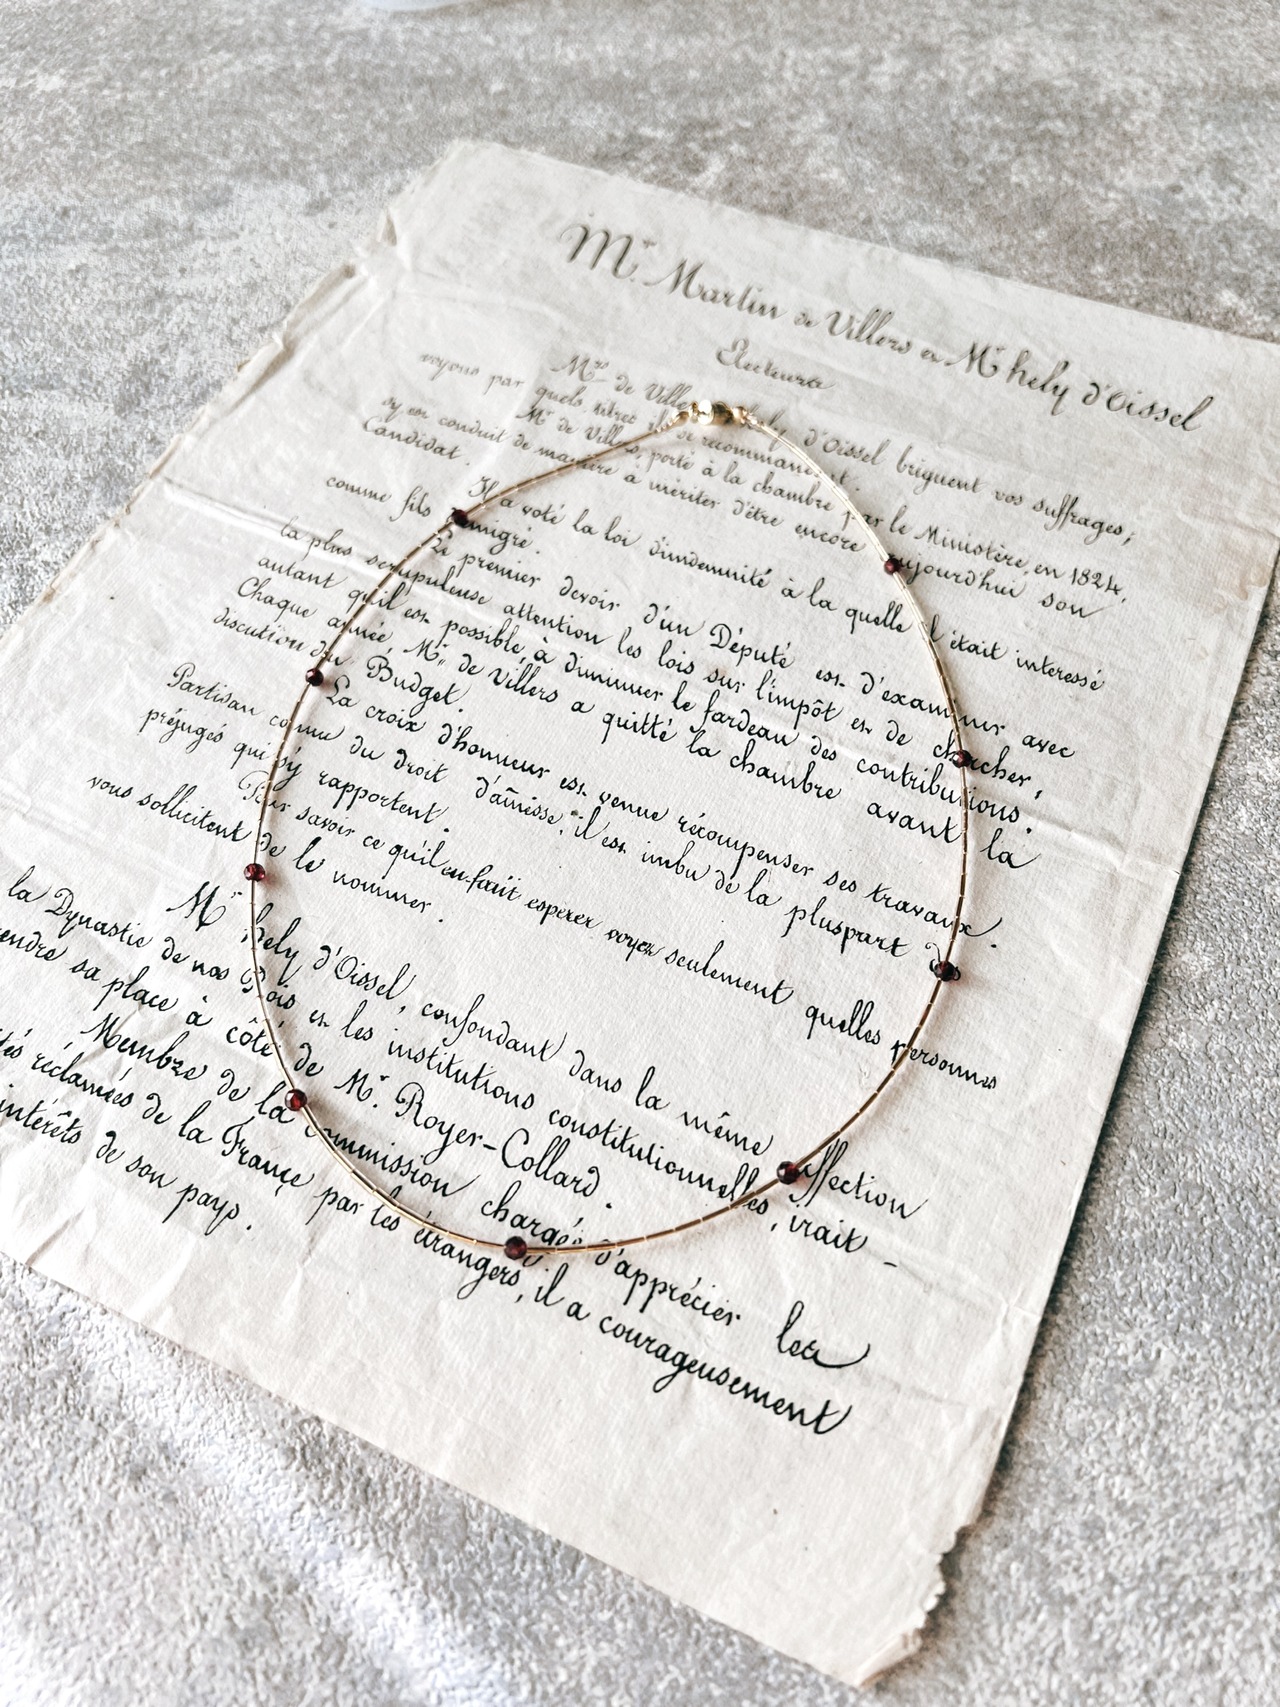 Mr. Martin de Villers et Mr hely d'Oissel
Electeurs
Mrs de Ville d'Oissel briguent vos suffrages;
voyons par quels titres il se recommandent.
Mr de Villers, porté à la chambre par le Ministère, en 1824,
sy est conduit de manière à mériter d'être encore aujourd'hui son
Candidat.
Il a voté la loi d'indemnité à la quelle l était interessé
comme fils émigré.
Le premier devoir d'un Député est d'examiner avec
la plus scrupuleuse attention les lois sur l'impôt et de chercher,
autant qu'il est possible, à diminuer le fardeau des contributions.
Chaque année, Mr. de Villers a quitté la chambre avant la
discution du Budget.
La croix d'honneur est venue récompenser ses travaux.
Partisan connu du droit d'aînesse, il est imbu de la pluspart des
préjugés qui sy rapportent.
Pour savoir ce qu'il en faut esperer voyez seulement quelles personnes
vous sollicitent de le nommer.
Mr. hely d'Oissel, confondant dans la même affection
la Dynastie de nos Rois et les institutions constitutionnelles, irait -
endre sa place à côté de Mr. Royer-Collard.
Membre de la Commission chargée d'apprécier les
tés réclamées de la France par les étrangers, il a courageusement
intérêts de son pays.